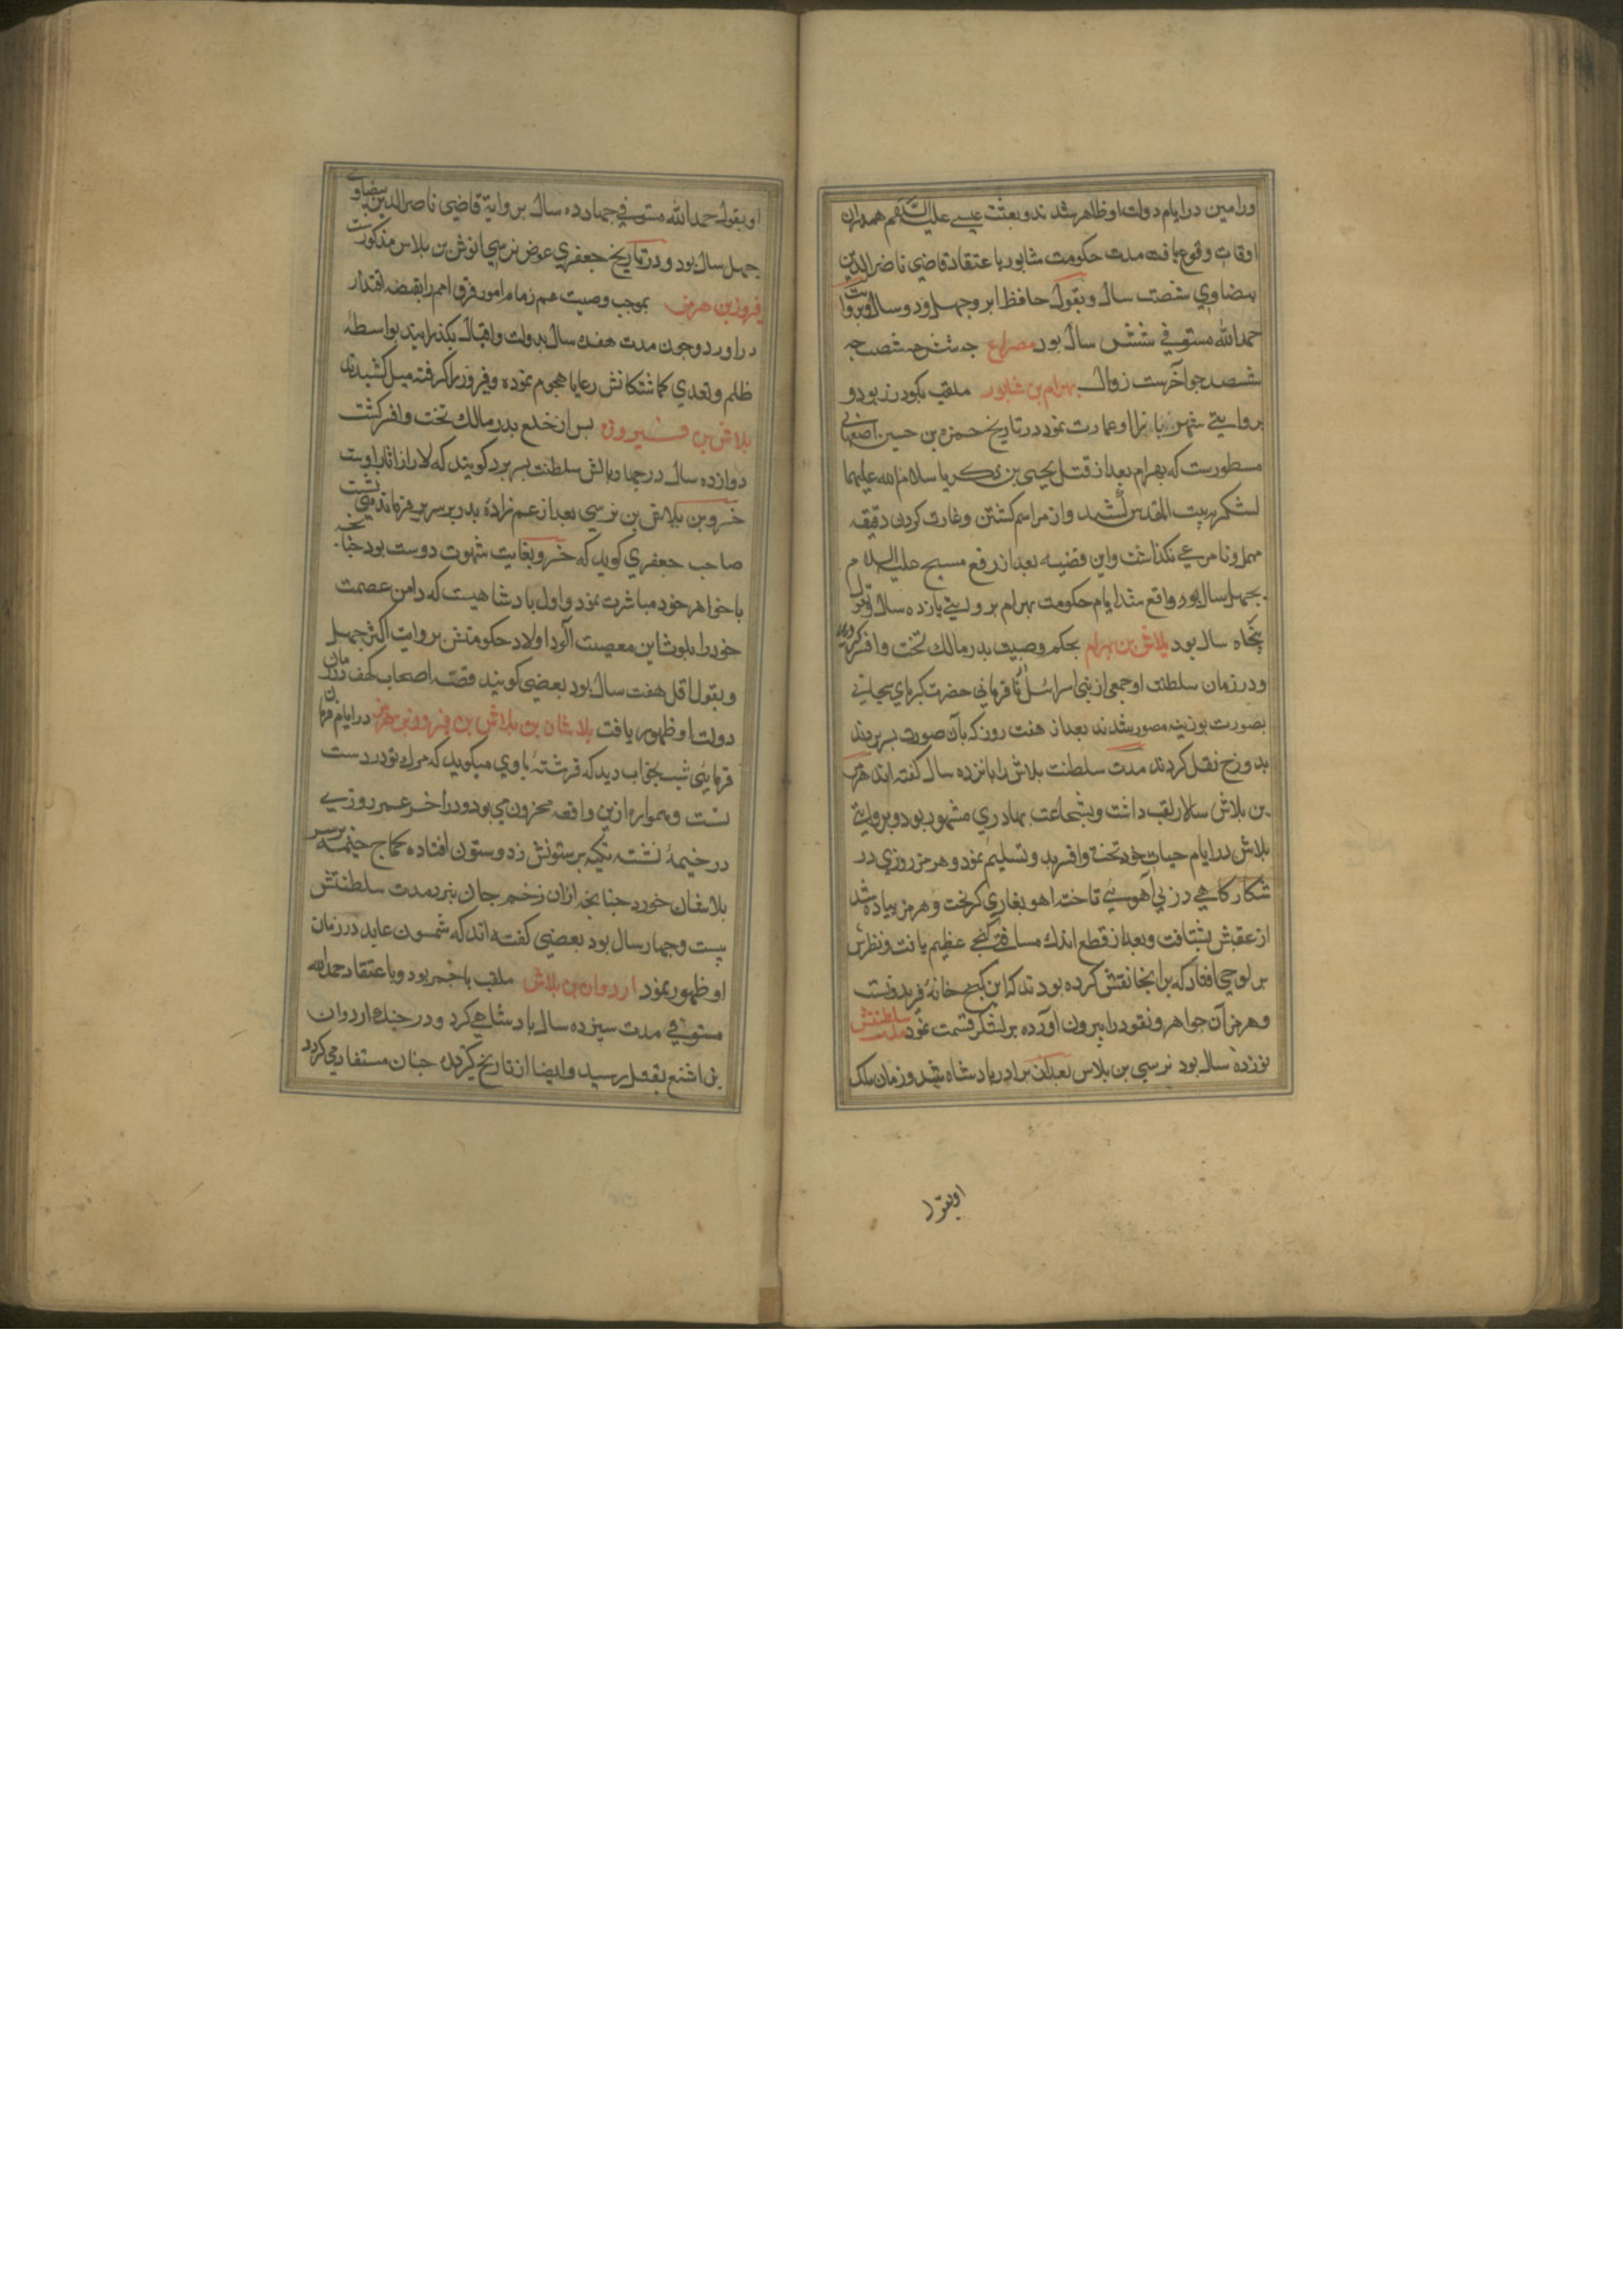 ورامین در ایام دولت او ظاهر شدند و بعثت عیسی علیه السلام هم در ان
اوقات وقوع یافت مدت حکومت شابور باعتقاد قاضی ناصر الدین
بیضاوی شصت سال و بقول حافظ ابرو چهل و دو سال و بروایت
حمد الله مستوفی شش سال بود مصراع چه شش چه شصت چه
ششصد جو آخرست زوال بهرام بن شابور ملقب بکودرز بود و
بروایتی شهر را او عمارت نمود در تاریخ حمزه بن حسین اصفهانی
مسطورست که بهرام بعد از قتل یحیی بن زکریا سلام الله علیهما
لشکر ببیت المقدس کشید و از مراسم کشتن و غارت کردن دقیقه
مهمل و نامرعی نکذاشت و این قضیه بعد از رفع مسیح علیه السلام
بچهل سال بود واقع شد ایام حکومت بهرام بروایتی یازده سال و بقولی
پنجاه سال بود بلاش بن بهرام بحکم وصیت بدر مالک تخت و افسر کردید
و در زمان سلطنت او جمعی از بنی اسرائیل نافرمانی حضرت کبریای سبحانی
بصورت بوزینه مصور شدند بعد از هفت روز که بآن صورت بسر بردند
بدوزخ نقل کردند مدت سلطنت بلاش را بانزده سال کفته اند هرمز
بن بلاش سالار لقب داشت و بشجاعت بهادری مشهور بود و بروایتی
بلاش در ایام حیات خود تخت و افسر بدو تسلیم نمود و هرمز روزی در
شکارکاهی در بی آهویی تاخت اهو بغاری کریخت و هرمز بیاده شد
از عقبش بشتافت و بعد از قطع اندک مسافتی کنجی عظیم یافت و نظرش
بر لوحی افتاد که بر انجا نقش کرده بودند که این کنج خانه فریدونست
و هرمز آن جواهر و نقود را بیرون آورده بر لشکر قسمت نمود مدت سلطنتش
نوزده سال بود نرسی بن بلاس بعد از برادر بادشاه شد و زمان ملک
او بقول
او بقول حمد الله مستوفی چهارده سال بروایة قاضی ناصر الدین بیضاوی
چهل سال بود و در تاریخ جعفری عوض نرسی انوش بن بلاس مذکورست
فیروز بن هرمز بموجب وصیت عم زمام امور فرق امم را بقبضه اقتدار
در اورد و جون مدت هفده سال بدولت و اقبال بکذرانید بواسطه
ظلم و تعدی کماشتکانش رعایا هجوم نموده و فیروز را کرفته میل کشیدند
بلاش بن فیروز بس از خلع بدر مالک تخت و افسر کشت
دوازده سال در چهار بالش سلطنت بسر برد کویند که لار از اثار اوست
خسرو بن بلاش بن نرسی بعد از عم زاده بدر بر سریر فرماندهی نشست
صاحب جعفری کوید که خسرو بغایت شهوت دوست بود چنانچه
با خواهر خود مباشرت نمود و اول بادشاهیست که دامن عصمت
خود را بلوث این معصیت آلود اولاد حکومتش بروایت اکثر چهل
و بقول اقل هفت سال بود بعضی کویند قصه اصحاب کهف در زمان
دولت او ظهور یافت بلاشان بن بلاش بن فیروز بن هرمز در ایام
فرمایی شب بخواب دید که فرشته با وی میکوید که مرک تو در دست
تست و همواره ازین واقعه محزون می بود و در اخر عمر روزی
در خیمه نشسته تکیه بر ستونش زد و ستون افتاده کماج خیمه بر سر
بلاشان خورد چنانچه ازان زخم جان نبرد مدت سلطنتش
بیست و چهار سال بود بعضی کفته اند که شمسون عابد در زمان
او ظهور نمود اردوان بن بلاش ملقب باخمر بود و باعتقاد حمد الله
مستوفی مدت سیزده سال بادشاهی کرد و در جنک اردوان
بن اشنع بقتل رسید و ایضا از تاریخ کزیده چنان مستفاد می کردد